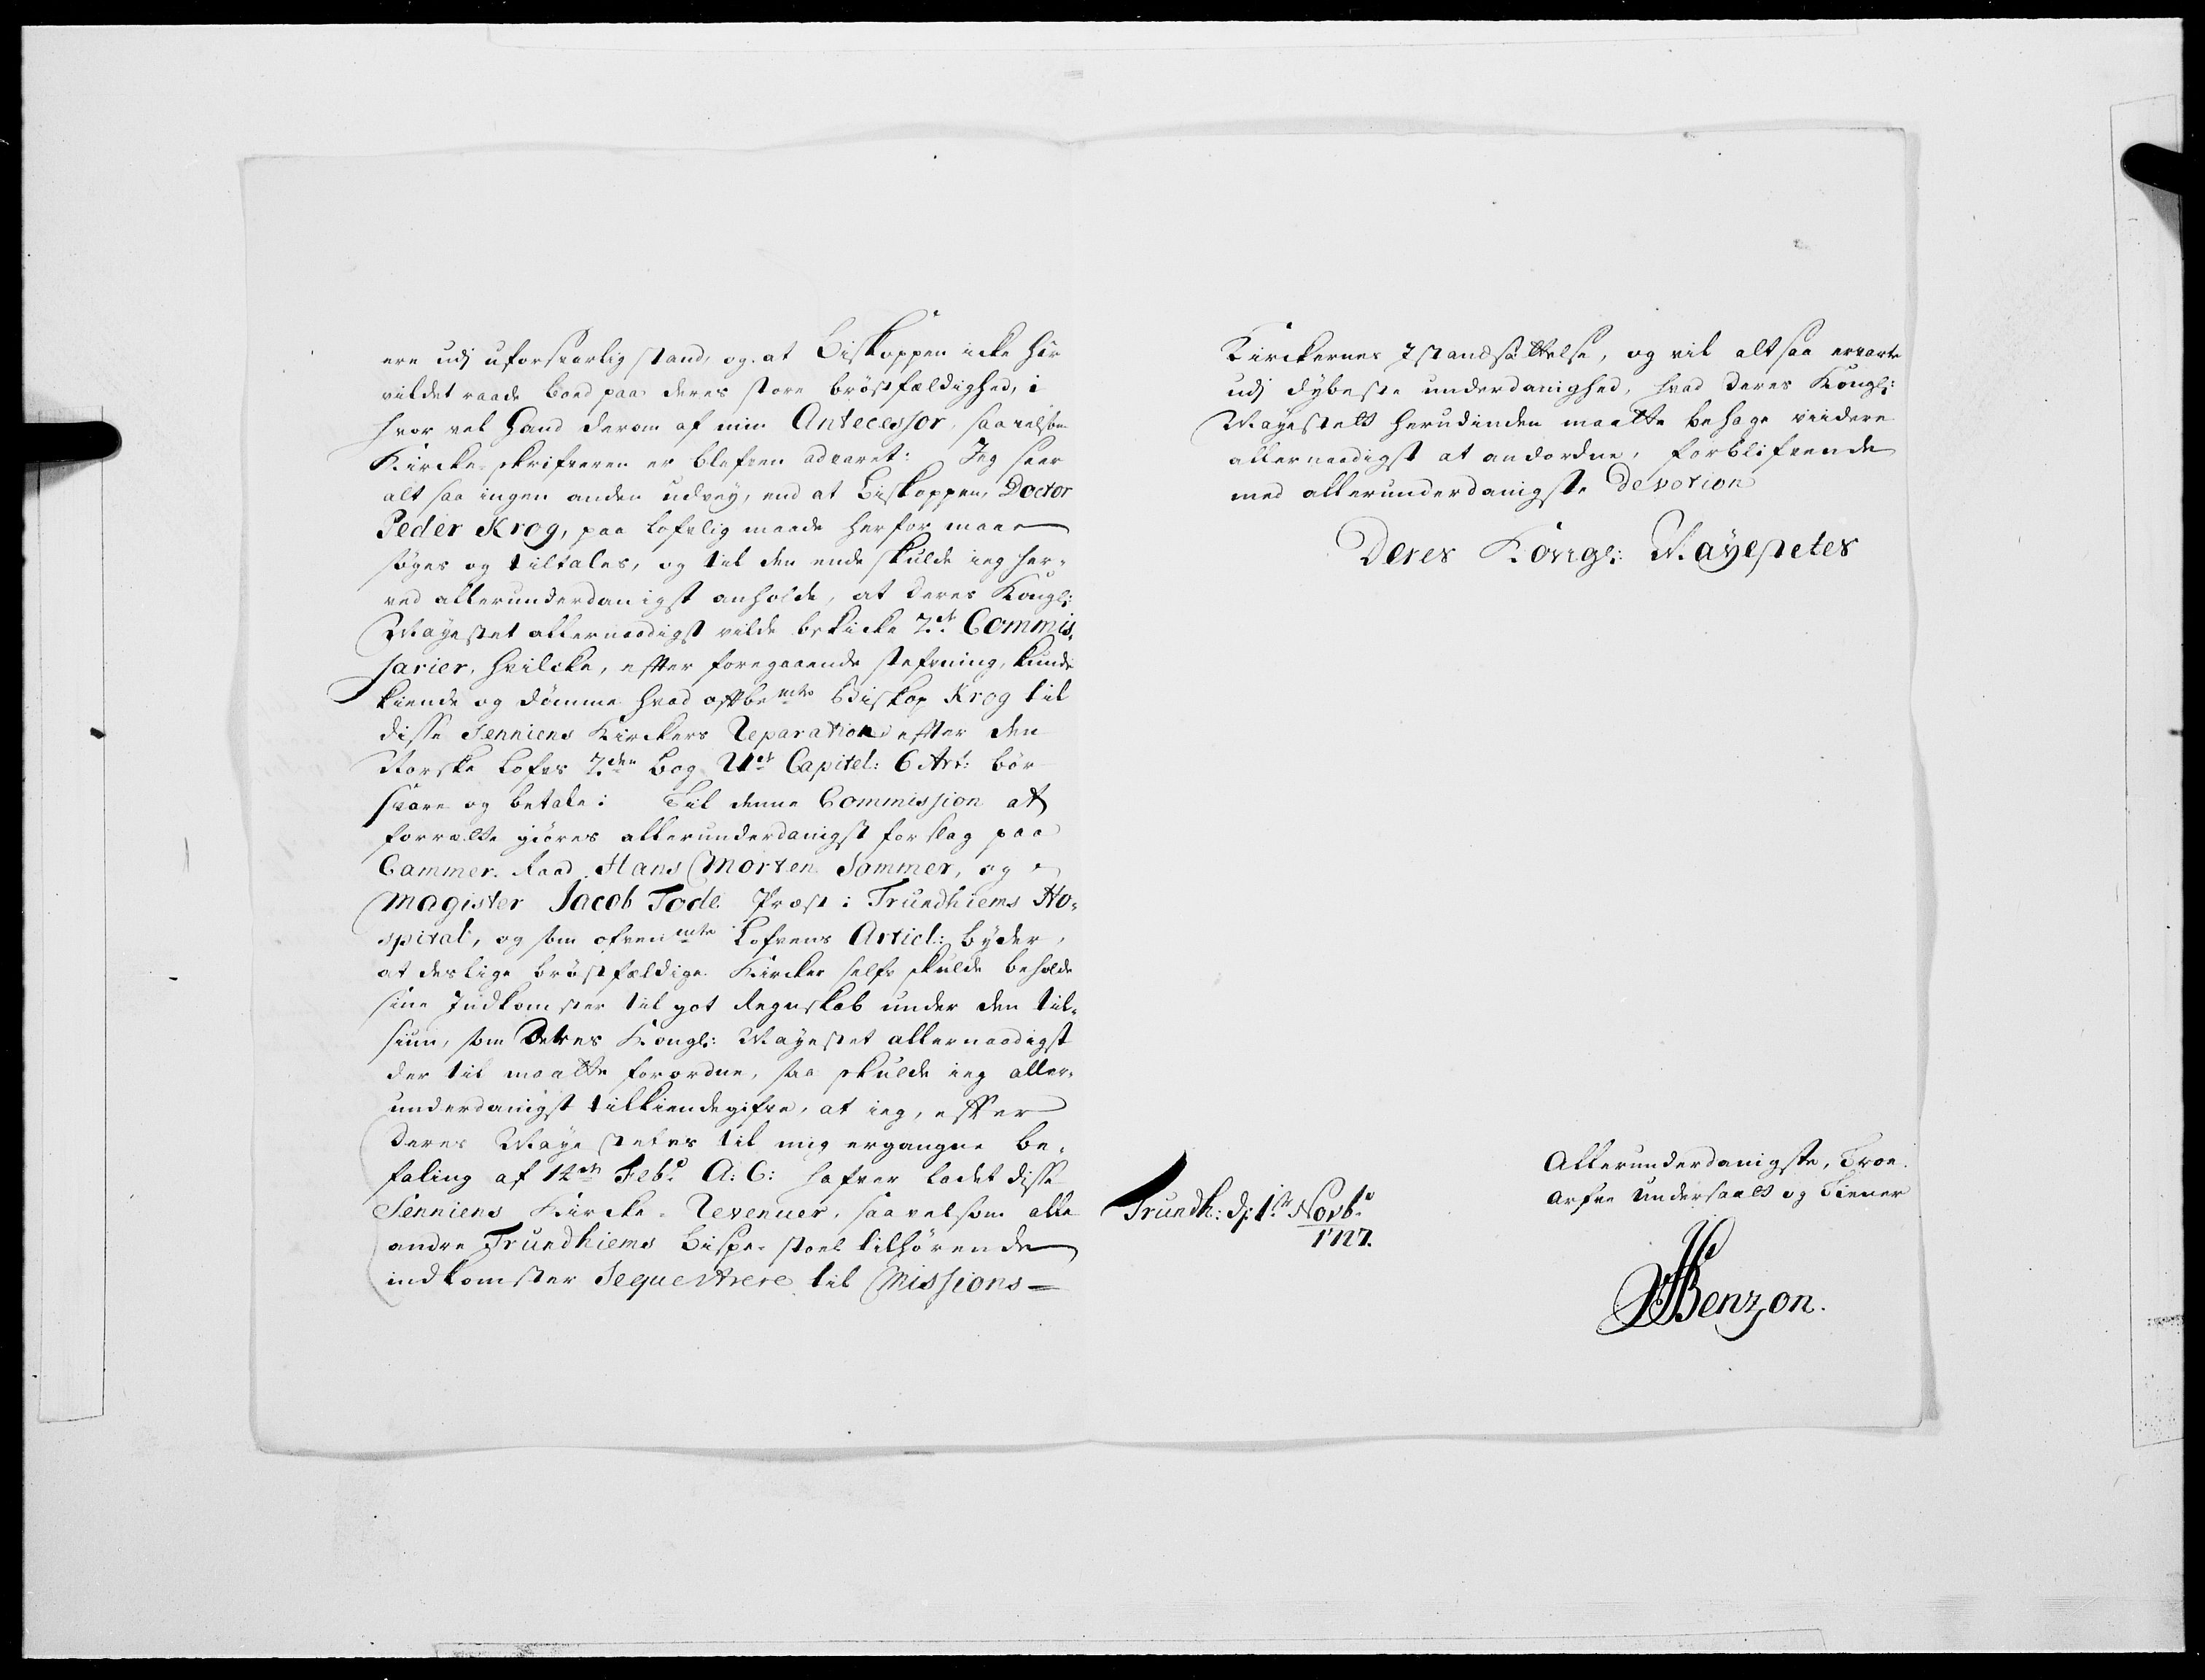 ere udj uforsvarlig stand, og at Biskoppen icke har
vildet raade bood paa deres store bröstfældighed, i
hvor vel hand derom af min Antecessor, saavelsom
Kircke-skrifveren er blefven advaret: Jeg seer
alt saa ingen anden udvej, end at Biskoppen, Doctor
Peder Krog, paa lofvlig maade herfor maae
søges og tiltales, og til den ende skulde ieg her-
ved allerunderdanigst anholde, at deres Kongl:
Mayestet allernaadigst vilde beskicke 2de Commis-
sarier, hvilcke, efter foregaaende stefvning, kunde
kiende og dömme hvad oftbemte Biskop Krog til
disse Senniens Kirckers Reparation efter den
Norske Lofvs 2den Bog 21et Capitel: 6 Art: bör
svare og betale: Til denne Commission at
forrætte giöres allerunderdanigst forslag paa
Cammer-Raad Hans Morten Sommer, og
Magister Jacob Tode Præst i Trundhiems Ho-
spital, og som ofvenmte Lofvens Articl: byder,
at deslige bröstfældige Kircker self skulde beholde
sine Indkomster til got Regnskab under den til-
siun, som Deres Kongl: Mayestet allernaadigst
der til maatte forordne, saa skulde ieg aller-
underdanigst tilkiendegifve, at ieg, efter
Deres Mayestetes til mig ergangne be-
faling af 12te Febr. A: C: hafver ladet disse
Senniens Kircke-Revenuer, saavelsom alle
andre Trundhiems Bispe-stoel tilhörende
indkomster Sequestrere til Missions-
Kirckernes Istandsættelse, og vil altsaa ervarte
udj dybeste underdanighed, hvad Deres Kongl:
Mayestett herudinden maatte behage viidere
allernaadigst at andordne, forblifvende
med allerunderdanigste Devotion
Deres Kongl: Mayestetes
Allerunderdanigste, Troe-
Arfve undersaatt og Tiener
Trundh: d: 1ste Novbr
1727.
Benzon.